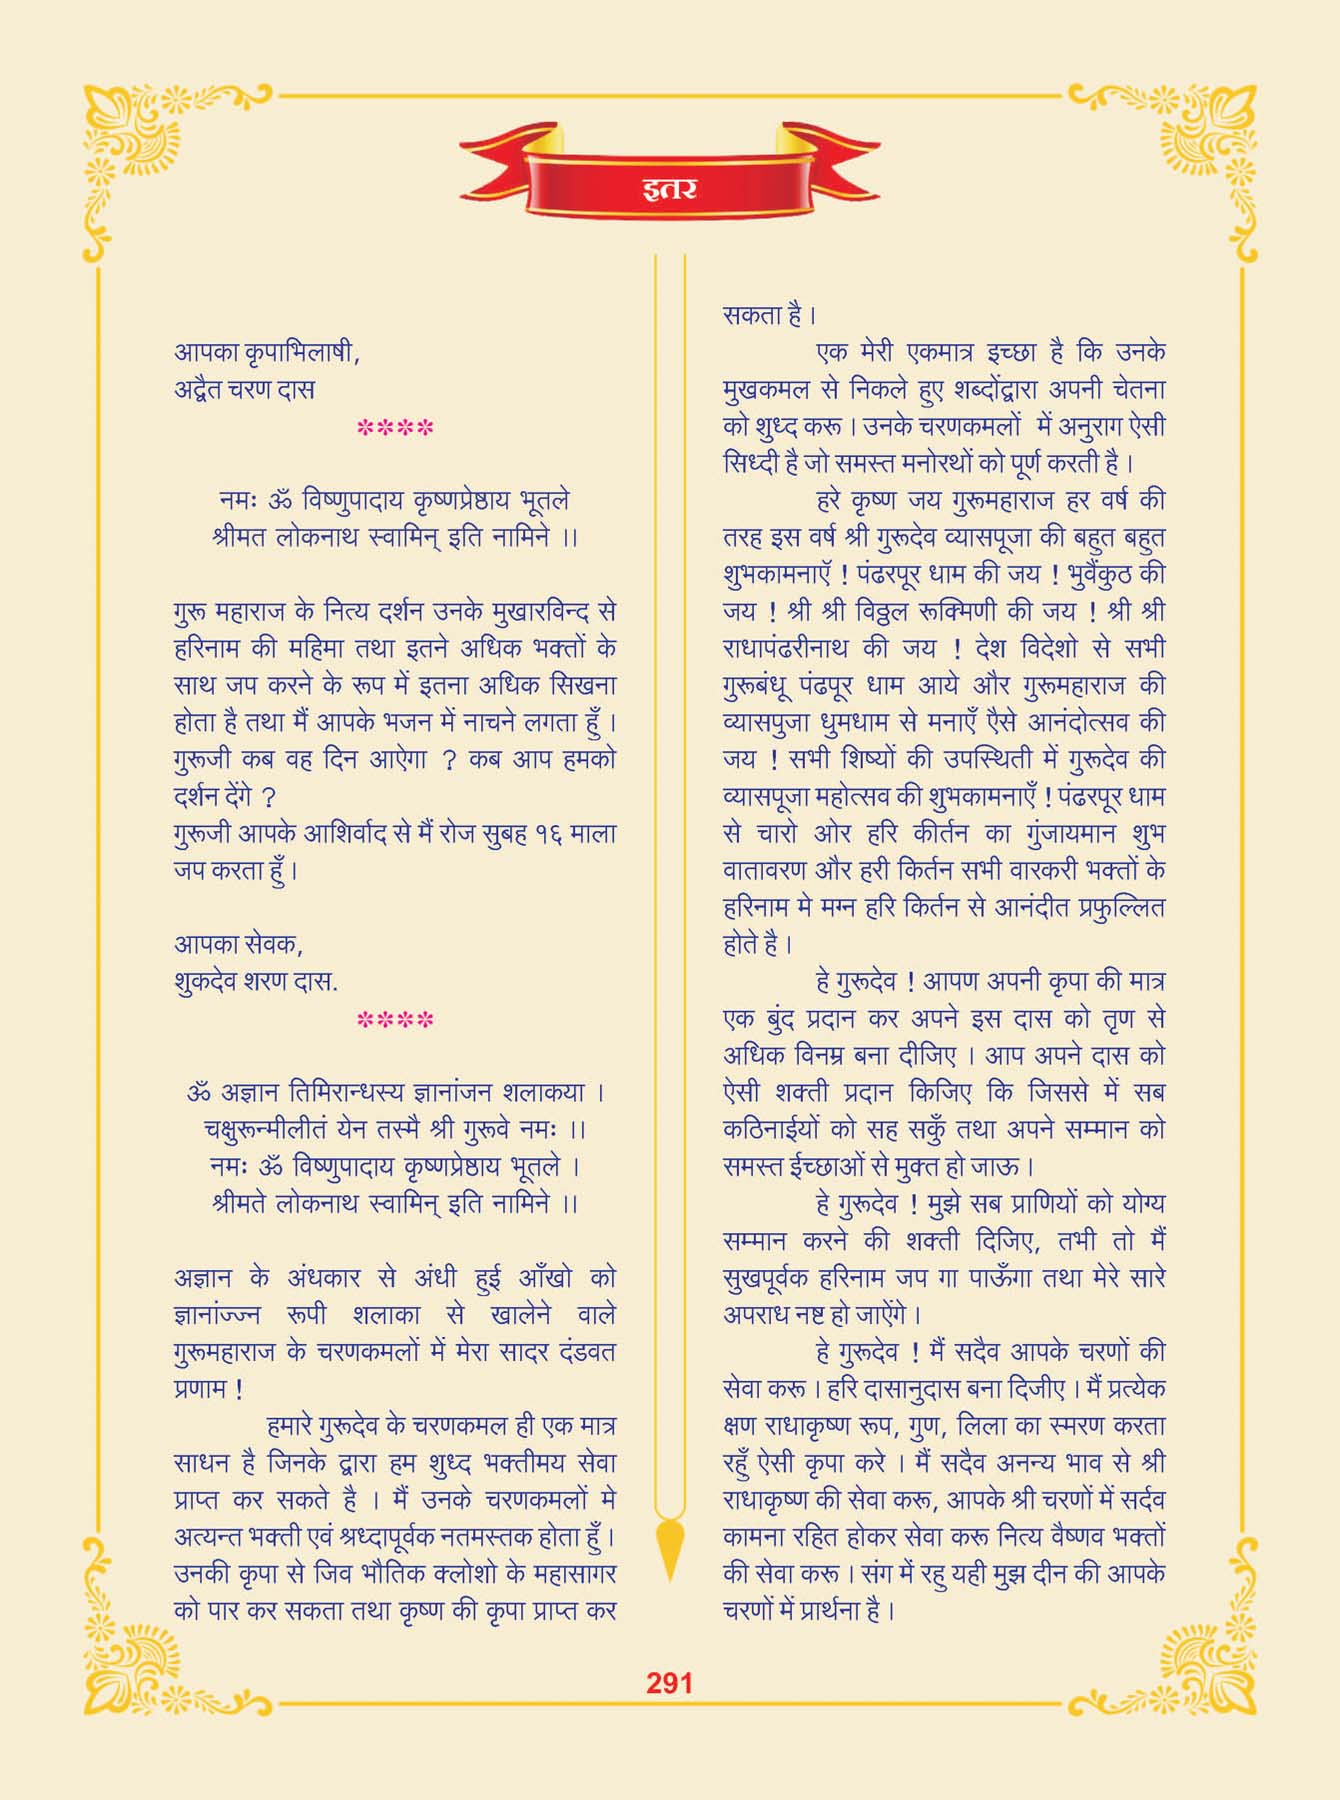 इतर
आपका कृपाभिलाषी,
अद्वैत चरण दास
****
नमः ॐ विष्णुपादाय कृष्णप्रेष्ठाय भूतले
श्रीमत लोकनाथ स्वामिन् इति नामिने ।।
गुरू महाराज के नित्य दर्शन उनके मुखारविन्द से
हरिनाम की महिमा तथा इतने अधिक भक्तों के
साथ जप करने के रूप में इतना अधिक सिखना
होता है तथा मैं आपके भजन में नाचने लगता हुँ ।
गुरूजी कब वह दिन आऐगा ? कब आप हमको
दर्शन देंगे ?
गुरूजी आपके आशिर्वाद से मैं रोज सुबह १६ माला
जप करता हुँ ।
आपका सेवक,
शुकदेव शरण दास.
****
ॐ अज्ञान तिमिरान्धस्य ज्ञानांजन शलाकया ।
चक्षुरून्मीलीतं येन तस्मै श्री गुरूवे नमः ।।
नमः ॐ विष्णुपादाय कृष्णप्रेष्ठाय भूतले ।
श्रीमते लोकनाथ स्वामिन् इति नामिने ।।
अज्ञान के अंधकार से अंधी हुई आँखो को
ज्ञानांज्ज्न रूपी शलाका से खालेने वाले
गुरूमहाराज के चरणकमलों में मेरा सादर दंडवत
प्रणाम !
हमारे गुरूदेव के चरणकमल ही एक मात्र
साधन है जिनके द्वारा हम शुध्द भक्तीमय सेवा
प्राप्त कर सकते है । मैं उनके चरणकमलों मे
अत्यन्त भक्ती एवं श्रध्दापूर्वक नतमस्तक होता हुँ ।
उनकी कृपा से जिव भौतिक क्लोशो के महासागर
को पार कर सकता तथा कृष्ण की कृपा प्राप्त कर
सकता है ।
एक मेरी एकमात्र इच्छा है कि उनके
मुखकमल से निकले हुए शब्दोंद्वारा अपनी चेतना
को शुध्द करू । उनके चरणकमलों में अनुराग ऐसी
सिध्दी है जो समस्त मनोरथों को पूर्ण करती है ।
हरे कृष्ण जय गुरूमहाराज हर वर्ष की
तरह इस वर्ष श्री गुरूदेव व्यासपूजा की बहुत बहुत
शुभकामनाएॅ ! पंढरपूर धाम की जय ! भुवैंकुठ की
जय ! श्री श्री विठ्ठल रूक्मिणी की जय ! श्री श्री
राधापंढरीनाथ की जय ! देश विदेशो से सभी
गुरूबंधू पंढपूर धाम आये और गुरूमहाराज की
व्यासपुजा धुमधाम से मनाएँ एैसे आनंदोत्सव की
जय ! सभी शिष्यों की उपस्थिती में गुरूदेव की
व्यासपूजा महोत्सव की शुभकामनाएँ ! पंढरपूर धाम
से चारो ओर हरि कीर्तन का गुंजायमान शुभ
वातावरण और हरी किर्तन सभी वारकरी भक्तों के
हरिनाम मे मग्न हरि किर्तन से आनंदीत प्रफुल्लित
होते है ।
हे गुरूदेव ! आपण अपनी कृपा की मात्र
एक बुंद प्रदान कर अपने इस दास को तृण से
अधिक विनम्र बना दीजिए । आप अपने दास को
ऐसी शक्ती प्रदान किजिए कि जिससे में सब
कठिनाईयों को सह सकुँ तथा अपने सम्मान को
समस्त ईच्छाओं से मुक्त हो जाऊ ।
हे गुरूदेव ! मुझे सब प्राणियों को योग्य
सम्मान करने की शक्ती दिजिए, तभी तो मैं
सुखपूर्वक हरिनाम जप गा पाऊँगा तथा मेरे सारे
अपराध नष्ट हो जाऐंगे ।
हे गुरूदेव ! मैं सदैव आपके चरणों की
सेवा करू । हरि दासानुदास बना दिजीए । मैं प्रत्येक
क्षण राधाकृष्ण रूप, गुण, लिला का स्मरण करता
रहुँ ऐसी कृपा करे । मैं सदैव अनन्य भाव से श्री
राधाकृष्ण की सेवा करू, आपके श्री चरणों में सर्दव
कामना रहित होकर सेवा करू नित्य वैष्णव भक्तों
की सेवा करू । संग में रहु यही मुझ दीन की आपके
चरणों में प्रार्थना है ।
291